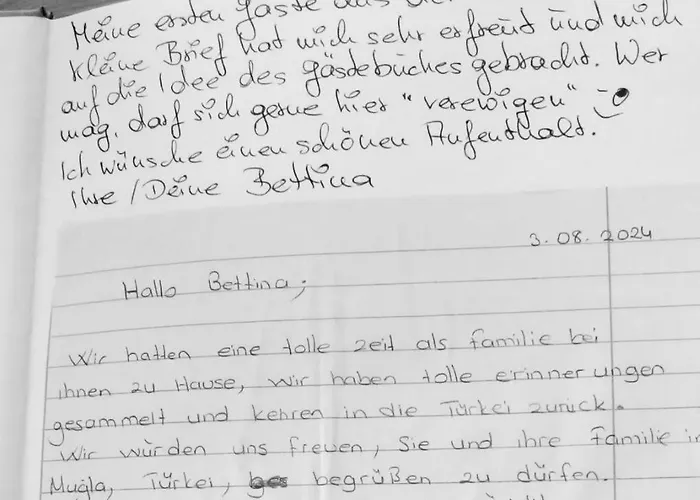 Meine ersten Gäste
kleine Brief hat mich sehr erfreut und mich
auf die Idee des gästebuches gebracht. Wer
mag, darf sich gerne hier "verewigen"
Ich wünsche einen schönen Aufenthalt.
Ihre / Deine Bettina
3.08.2024
Hallo Bettina;
Wir hatten eine tolle zeit als familie bei
ihnen zu Hause, wir haben tolle erinnerungen
gesammelt und kehren in die Türkei zurück.
Wir würden uns freuen, Sie und ihre familie in
Muğla, Türkei, begrüßen zu dürfen.